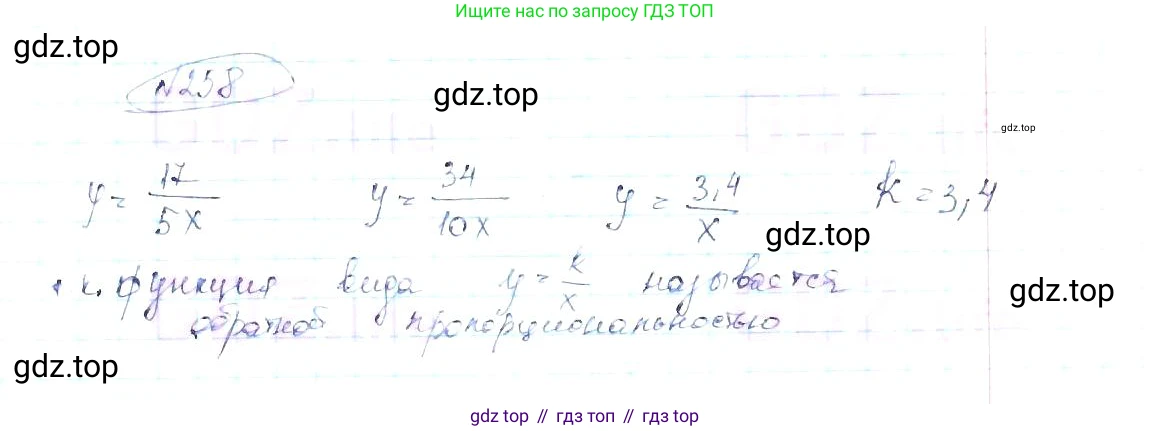 Ищите нас по запросу ГДЗ ТОП
gdz.top
№258
gdz.top
gdz.top
y = 17/5x   y = 34/10x   y = 3,4/x   k = 3,4
gdz.top
т.к. функция вида y = k/x называется
gdz.top
обратной пропорциональностью
gdz.top
gdz top // гдз топ // гдз top